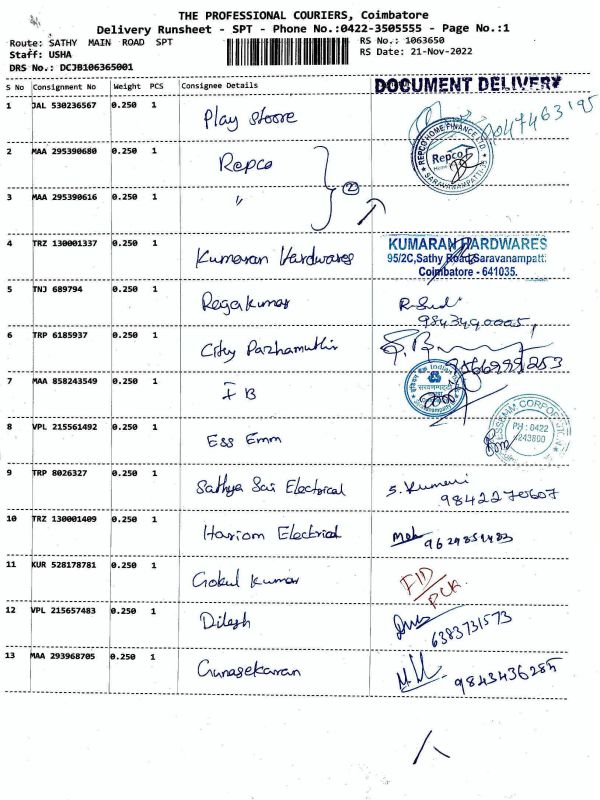 THE PROFESSIONAL COURIERS, Coimbatore
Delivery Runsheet - SPT - Phone No.:0422-3505555 - Page No.:1
Route: SATHY MAIN ROAD SPT
RS No.: 1063650
Staff: USHA
RS Date: 21-Nov-2022
DRS No.: DCJB106365001
S No Consignment No Weight PCS Consignee Details DOCUMENT DELIVERY
1 JAL 530236567 0.250 1 Play stoore
2 MAA 295390680 0.250 1 Repco 2
REPCO HOME FINANCE LTD
Repco
SARAVANAMPATTI
3 MAA 295390616 0.250 1 "
4 TRZ 130001337 0.250 1 Kumaran Hardwares
KUMARAN HARDWARES
95/2C, Sathy Road, Saravanampatti
Coimbatore - 641035.
5 TNJ 689794 0.250 1 Regakumar
9843490005
6 TRP 6185937 0.250 1 City Pazhamuthir
9566299253
7 MAA 858243549 0.250 1 I B
Indian
8 VPL 215561492 0.250 1 Ess Emm
PH : 0422
9 TRP 8026327 0.250 1 Sathya Sai Electrical S. Kumari
9842270607
10 TRZ 130001409 0.250 1 Hariom Electrical
11 KUR 528178781 0.250 1 Gokul Kumar
12 VPL 215657483 0.250 1 Dilesh
6383731573
13 MAA 293968705 0.250 1 Gunasekaran
9843436285